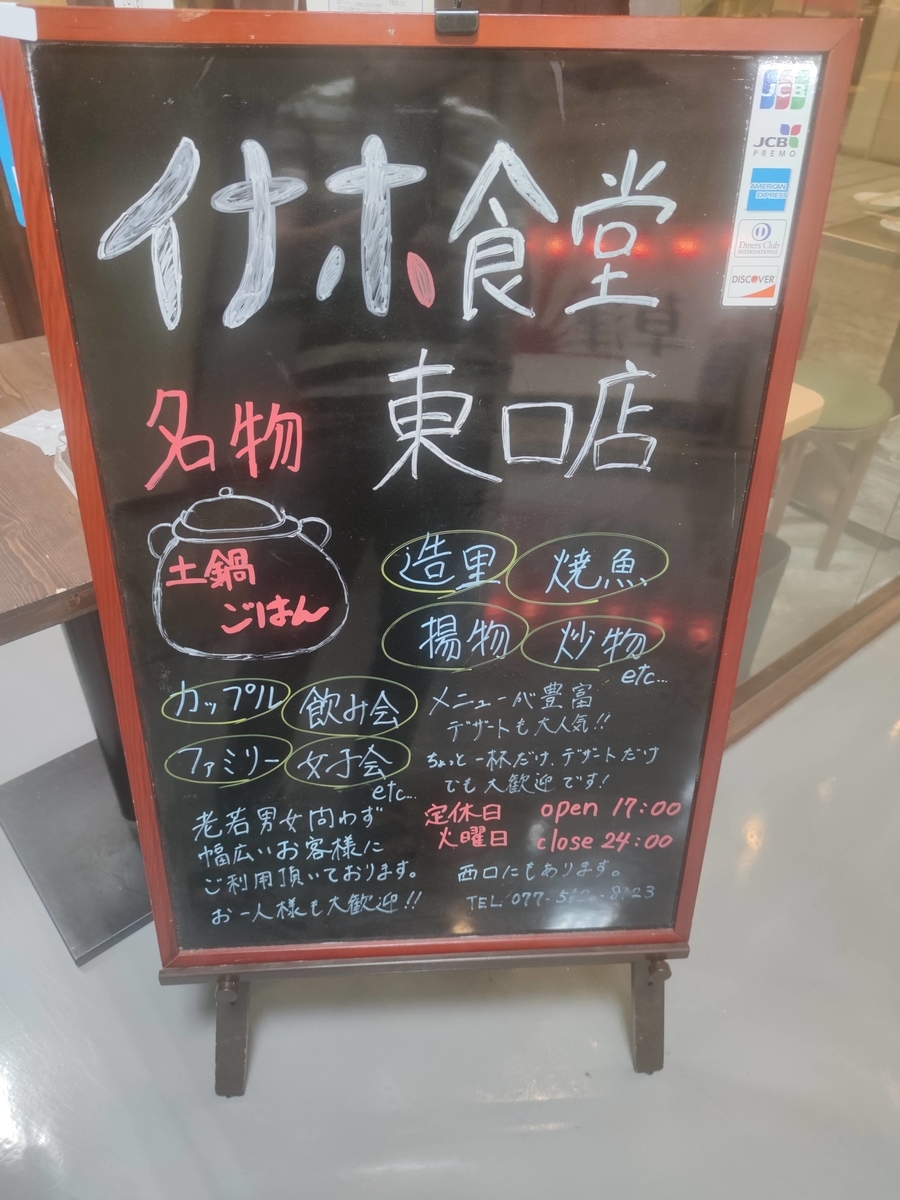 イナホ食堂
東口店
名物
土鍋
ごはん
造里
焼魚
揚物
炒物
etc...
カップル
飲み会
ファミリー
女子会
etc...
メニューが豊富
デザートも大人気!!
ちょっと一杯だけ、デザートだけ
でも大歓迎です!
老若男女問わず
幅広いお客様に
ご利用頂いております。
お一人様も大歓迎!!
定休日
火曜日
open 17:00
close 24:00
西口にもあります。
TEL 077-
JCB
JCB
PREMO
AMERICAN
EXPRESS
Diners Club
INTERNATIONAL
DISCOVER